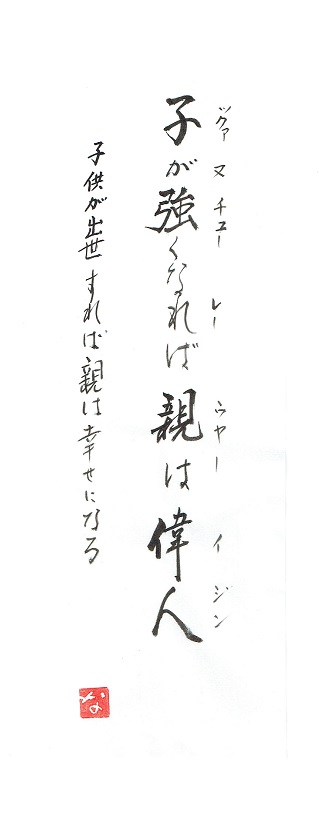 ックァ ヌ チュー レー ウヤー イジン
子が強くなれば親は偉人
子供が出世すれば親は幸せになる
な